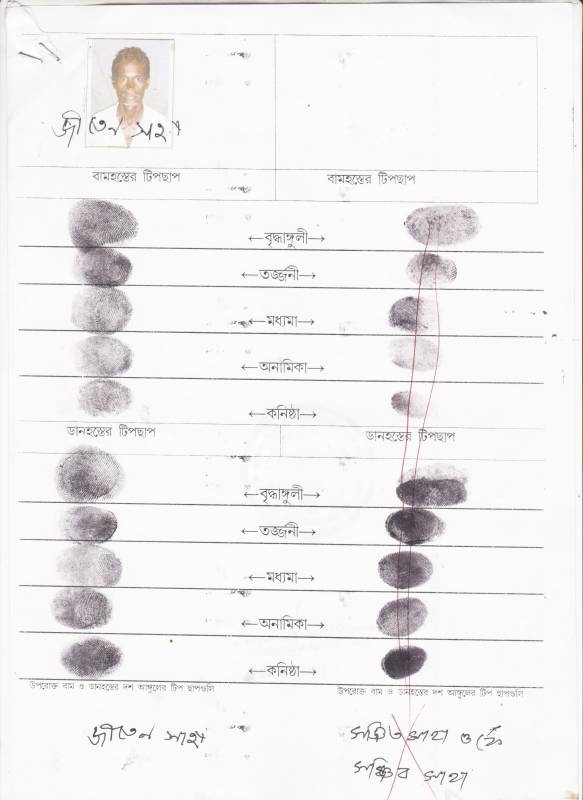 জীতেন সাহা
বামহস্তের টিপছাপ
বামহস্তের টিপছাপ
←বৃদ্ধাঙ্গুলী→
←তর্জ্জনী→
←মধ্যমা→
←অনামিকা→
←কনিষ্ঠা→
ডানহস্তের টিপছাপ
ডানহস্তের টিপছাপ
←বৃদ্ধাঙ্গুলী→
←তর্জ্জনী→
←মধ্যমা→
←অনামিকা→
←কনিষ্ঠা→
উপরোক্ত বাম ও ডানহস্তের দশ আঙ্গুলের টিপ ছাপগুলি
উপরোক্ত বাম ও ডানহস্তের দশ আঙ্গুলের টিপ ছাপগুলি
জীতেন সাহা
সাহা ও
সাহা